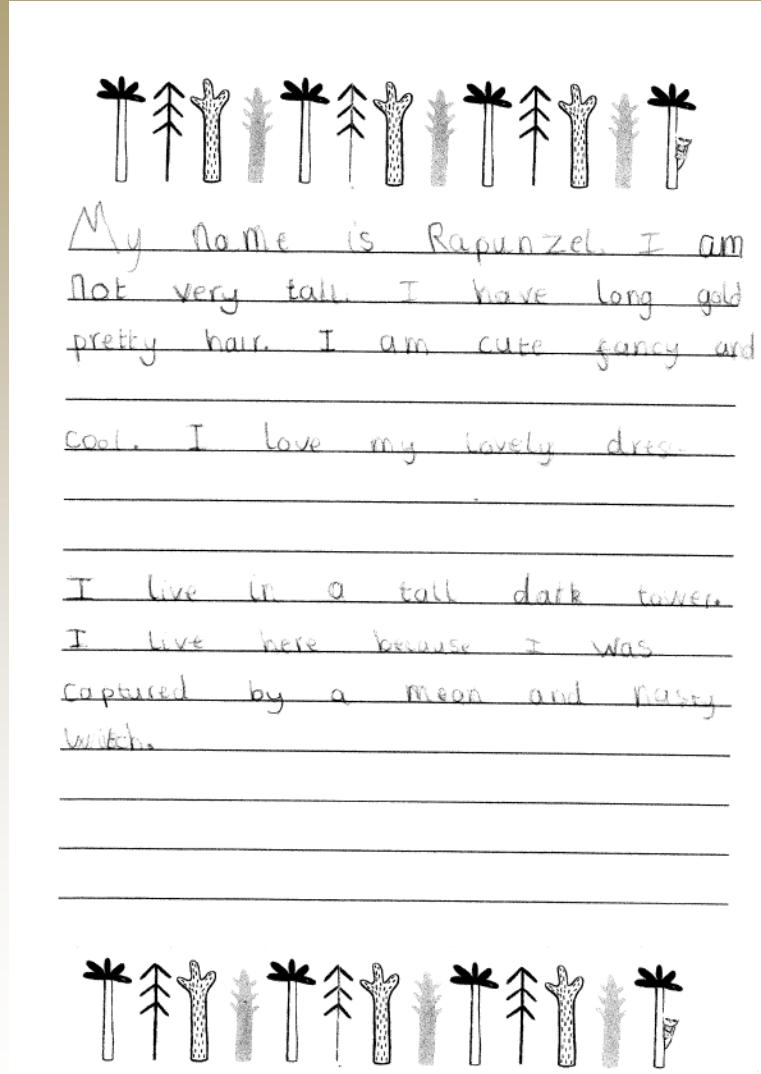 My name is Rapunzel. I am
not very tall. I have long gold
pretty hair. I am cute fancy and
cool. I love my lovely dres
I live in a tall dark tower.
I live here because I was
captured by a mean and nasty
witch.